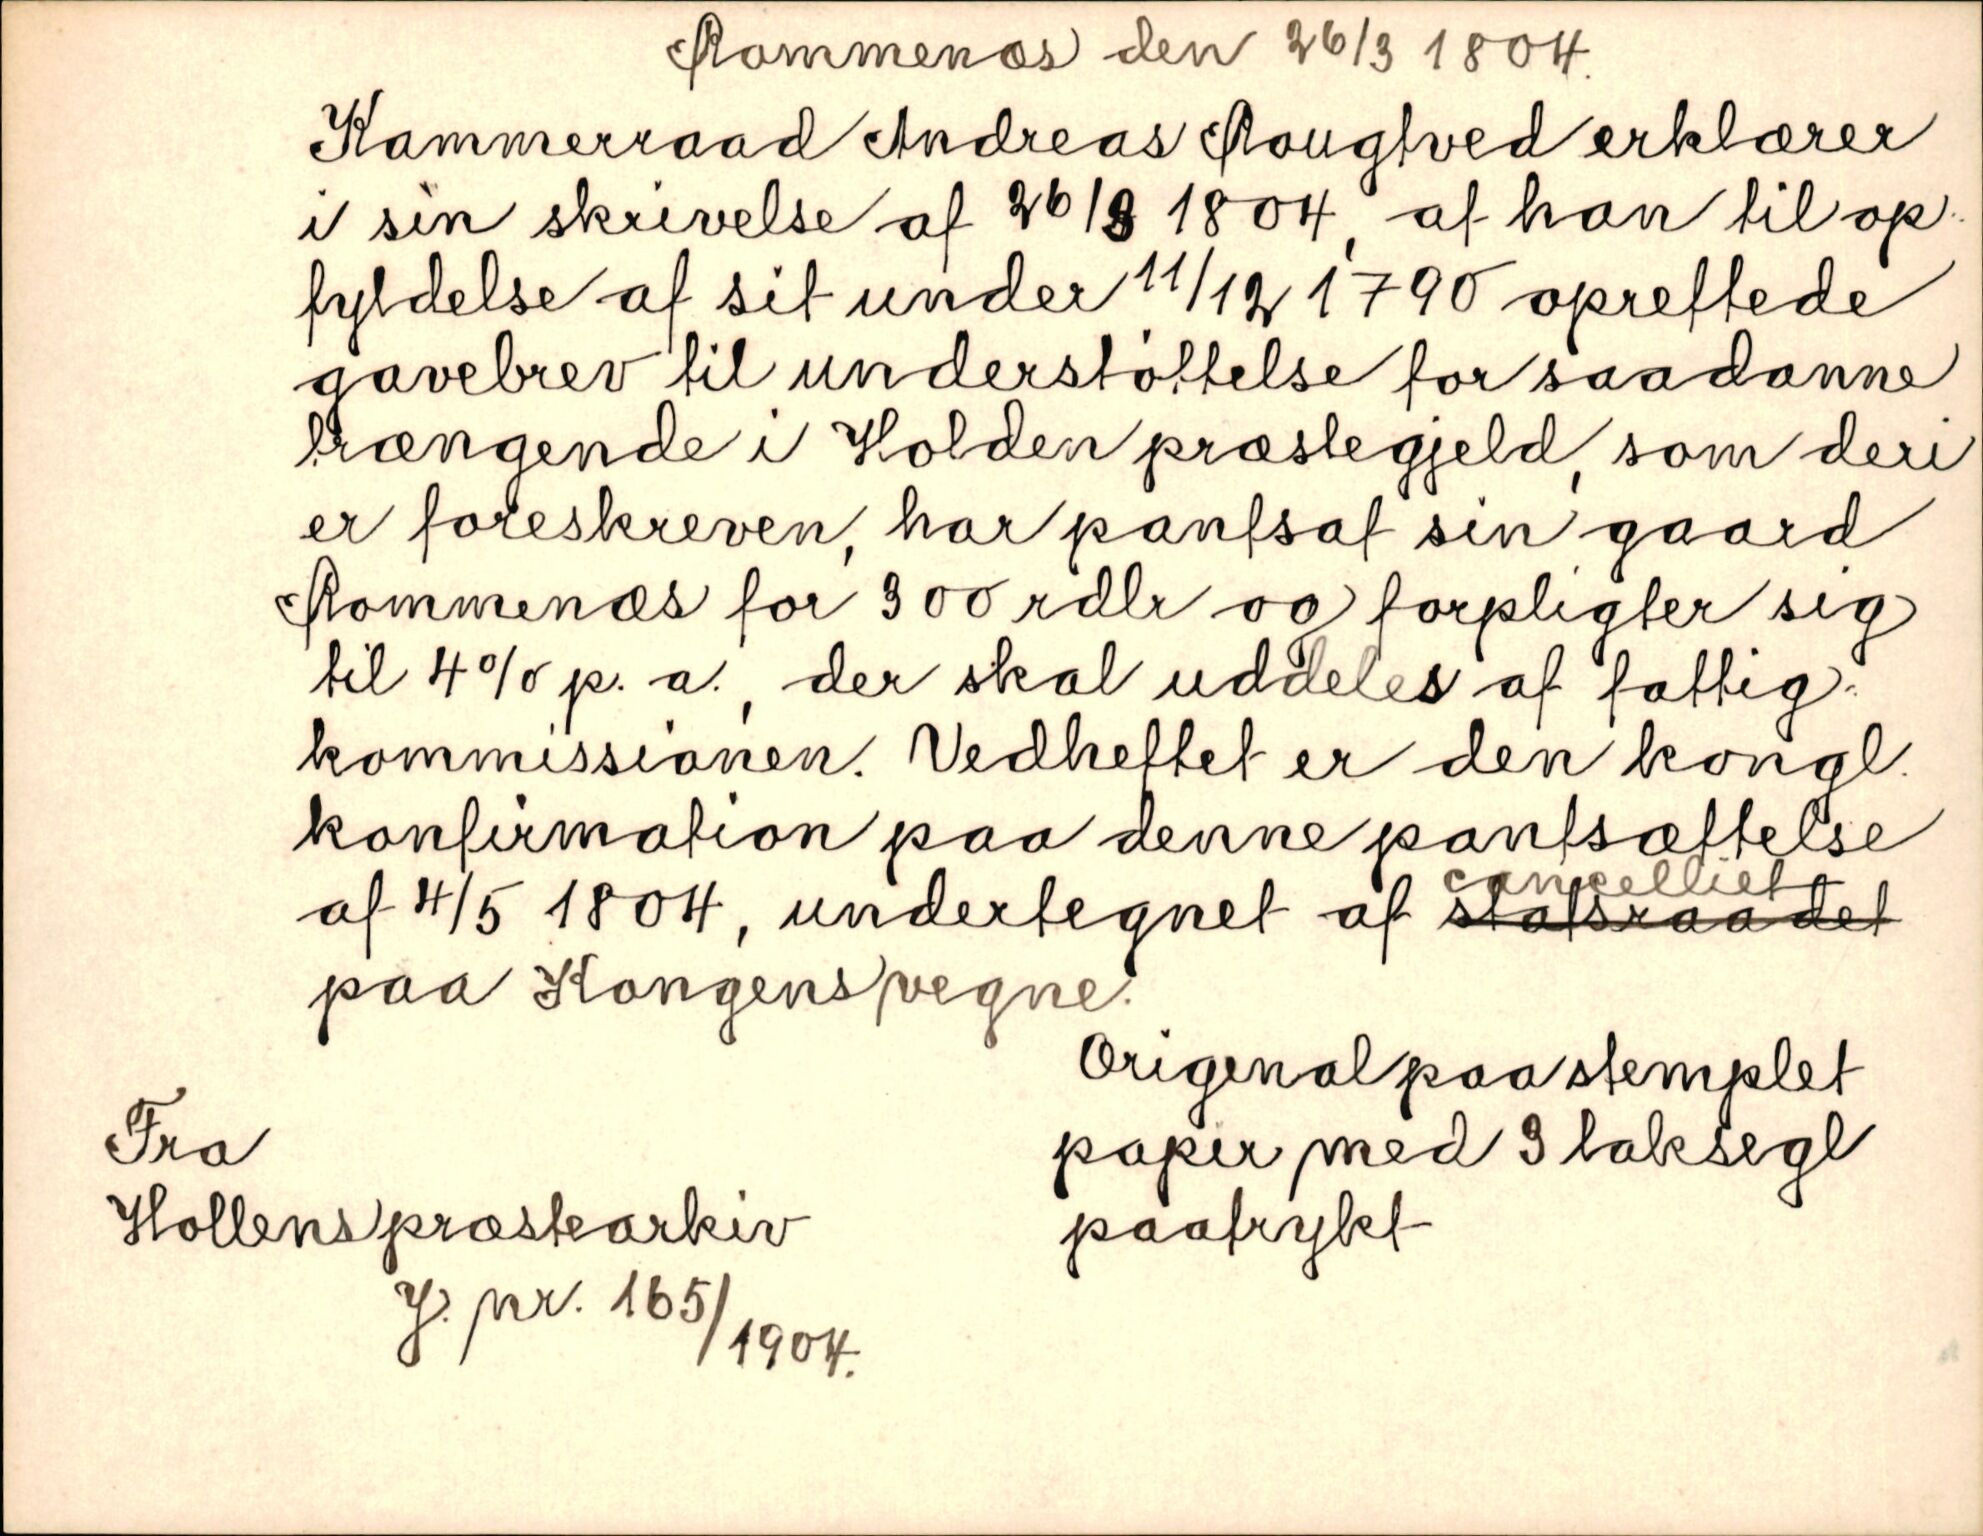 Rommenæs den 26/3 1804.
Kammerraad Andreas Rougtved erklærer
i sin skrivelse af 26/3 1804, at han til op-
fyldelse af sit under 11/12 1790 oprettede
gavebrev til understöttelse for saadanne
trængende i Holden præstegjeld, som deri
er foreskreven, har pantsat sin gaard
Rommenæs for 300 rdlr og forpligter sig
til 4% p. a., der skal uddeles af fattig-
kommissionen. Vedheftet er den kongl.
konfirmation paa denne pantsættelse
cancelliet
af 4/5 1804, undertegnet af statsraadet
paa Kongens vegne.
Original paa stemplet
papir med 3 laksegl
paatrykt
Fra
Hollens præstearkiv
J. nr. 165/1904.